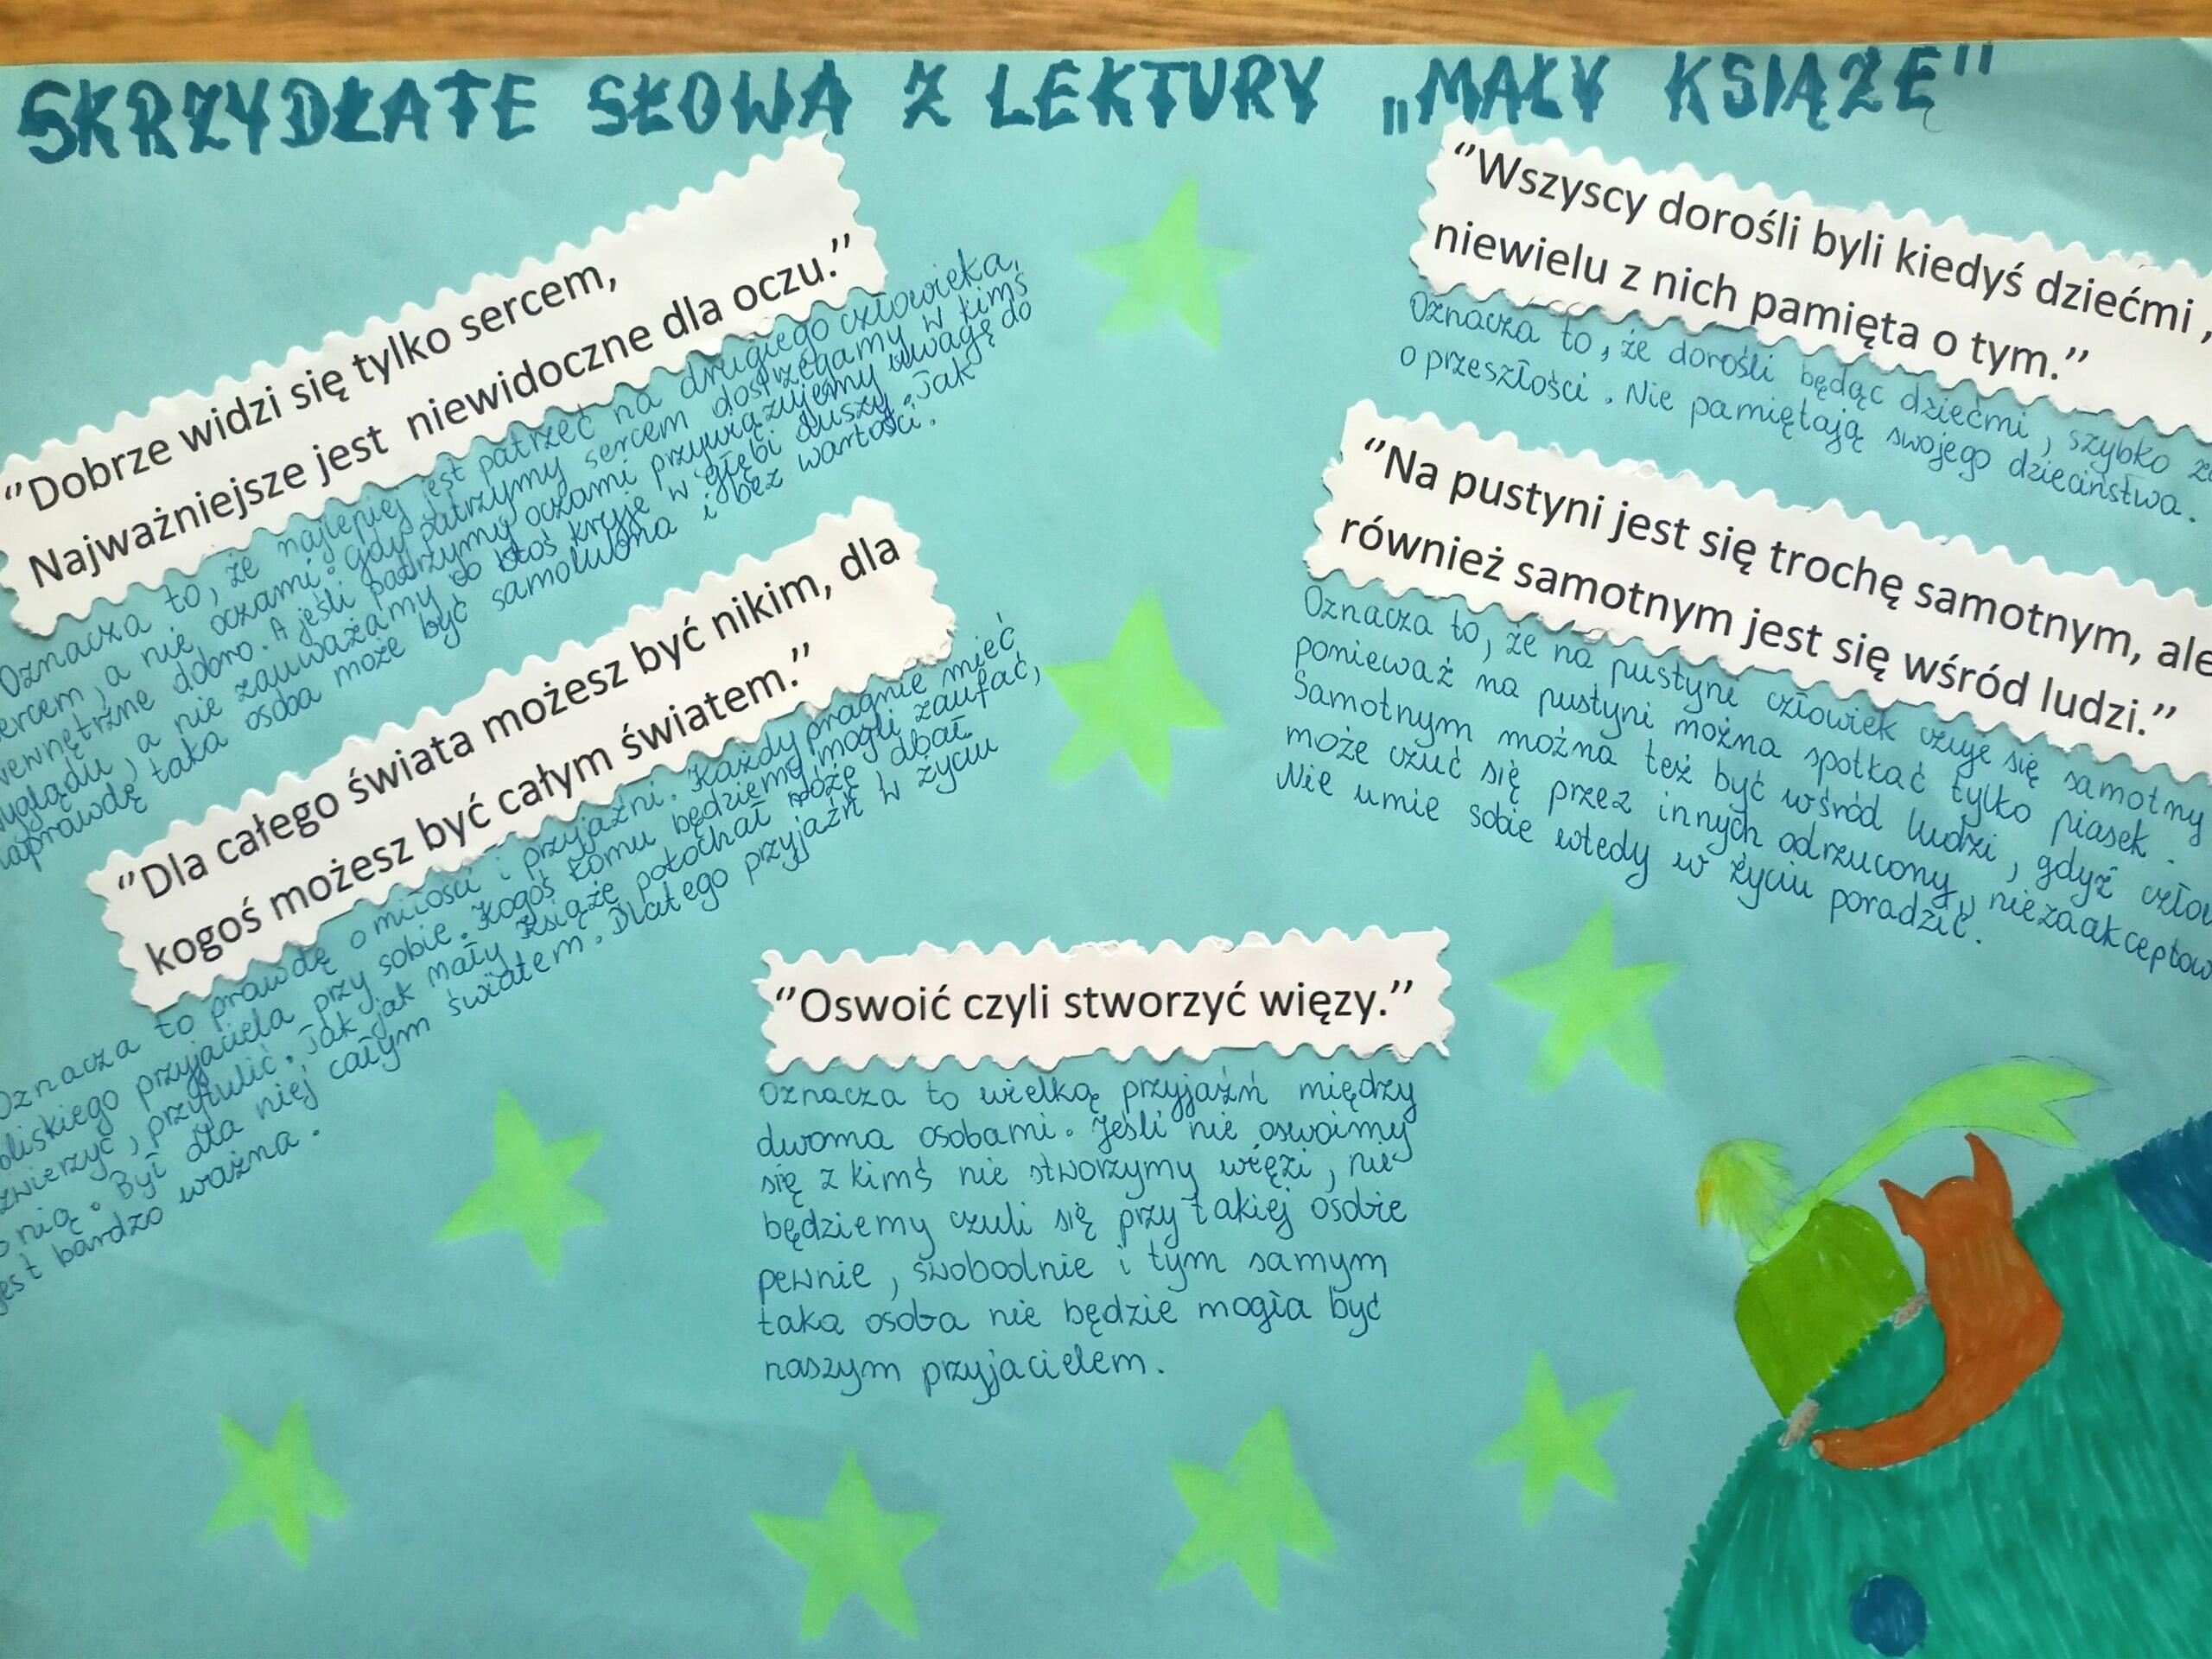 SKRZYDŁATE SŁOWA Z LEKTURY „MAŁY KSIĄŻĘ"
"Dobrze widzi się tylko sercem,
Najważniejsze jest niewidoczne dla oczu."
Oznacza to, że najlepiej jest patrzeć na drugiego człowieka,
sercem, a nie oczami. Gdy patrzymy sercem dostrzegamy w kimś
wewnętrzne dobro. A jeśli patrzymy oczami przywiązujemy uwagę do
wyglądu, a nie zauważamy co ktoś kryje w głębi duszy. Jak
naprawdę taka osoba może być samolubna i bez wartości.
"Dla całego świata możesz być nikim, dla
kogoś możesz być całym światem."
Oznacza to prawdę o miłości i przyjaźni. Każdy pragnie mieć
bliskiego przyjaciela przy sobie. Kogoś komu będziemy mogli zaufać,
zwierzyć, przytulić. Tak jak mały Książę pokochał różę dbał
o nią. Był dla niej całym światem. Dlatego przyjaźń w życiu
jest bardzo ważna.
"Wszyscy dorośli byli kiedyś dziećmi,
niewielu z nich pamięta o tym."
Oznacza to, że dorośli będąc dziećmi, szybko
o przeszłości. Nie pamiętają swojego dzieciństwa.
"Na pustyni jest się trochę samotnym, ale
również samotnym jest się wśród ludzi."
Oznacza to, że na pustyni człowiek czuje się samotny
ponieważ na pustyni można spotkać tylko piasek.
Samotnym można też być wśród ludzi, gdyż
może czuć się przez innych odrzucony,
Nie umie sobie wtedy w życiu poradzić.
"Oswoić czyli stworzyć więzy."
Oznacza to wielką przyjaźń między
dwoma osobami. Jeśli nie oswoimy
się z kimś nie stworzymy więzi, nie
będziemy czuli się przy takiej osobie
pewnie, swobodnie i tym samym
taka osoba nie będzie mogła być
naszym przyjacielem.